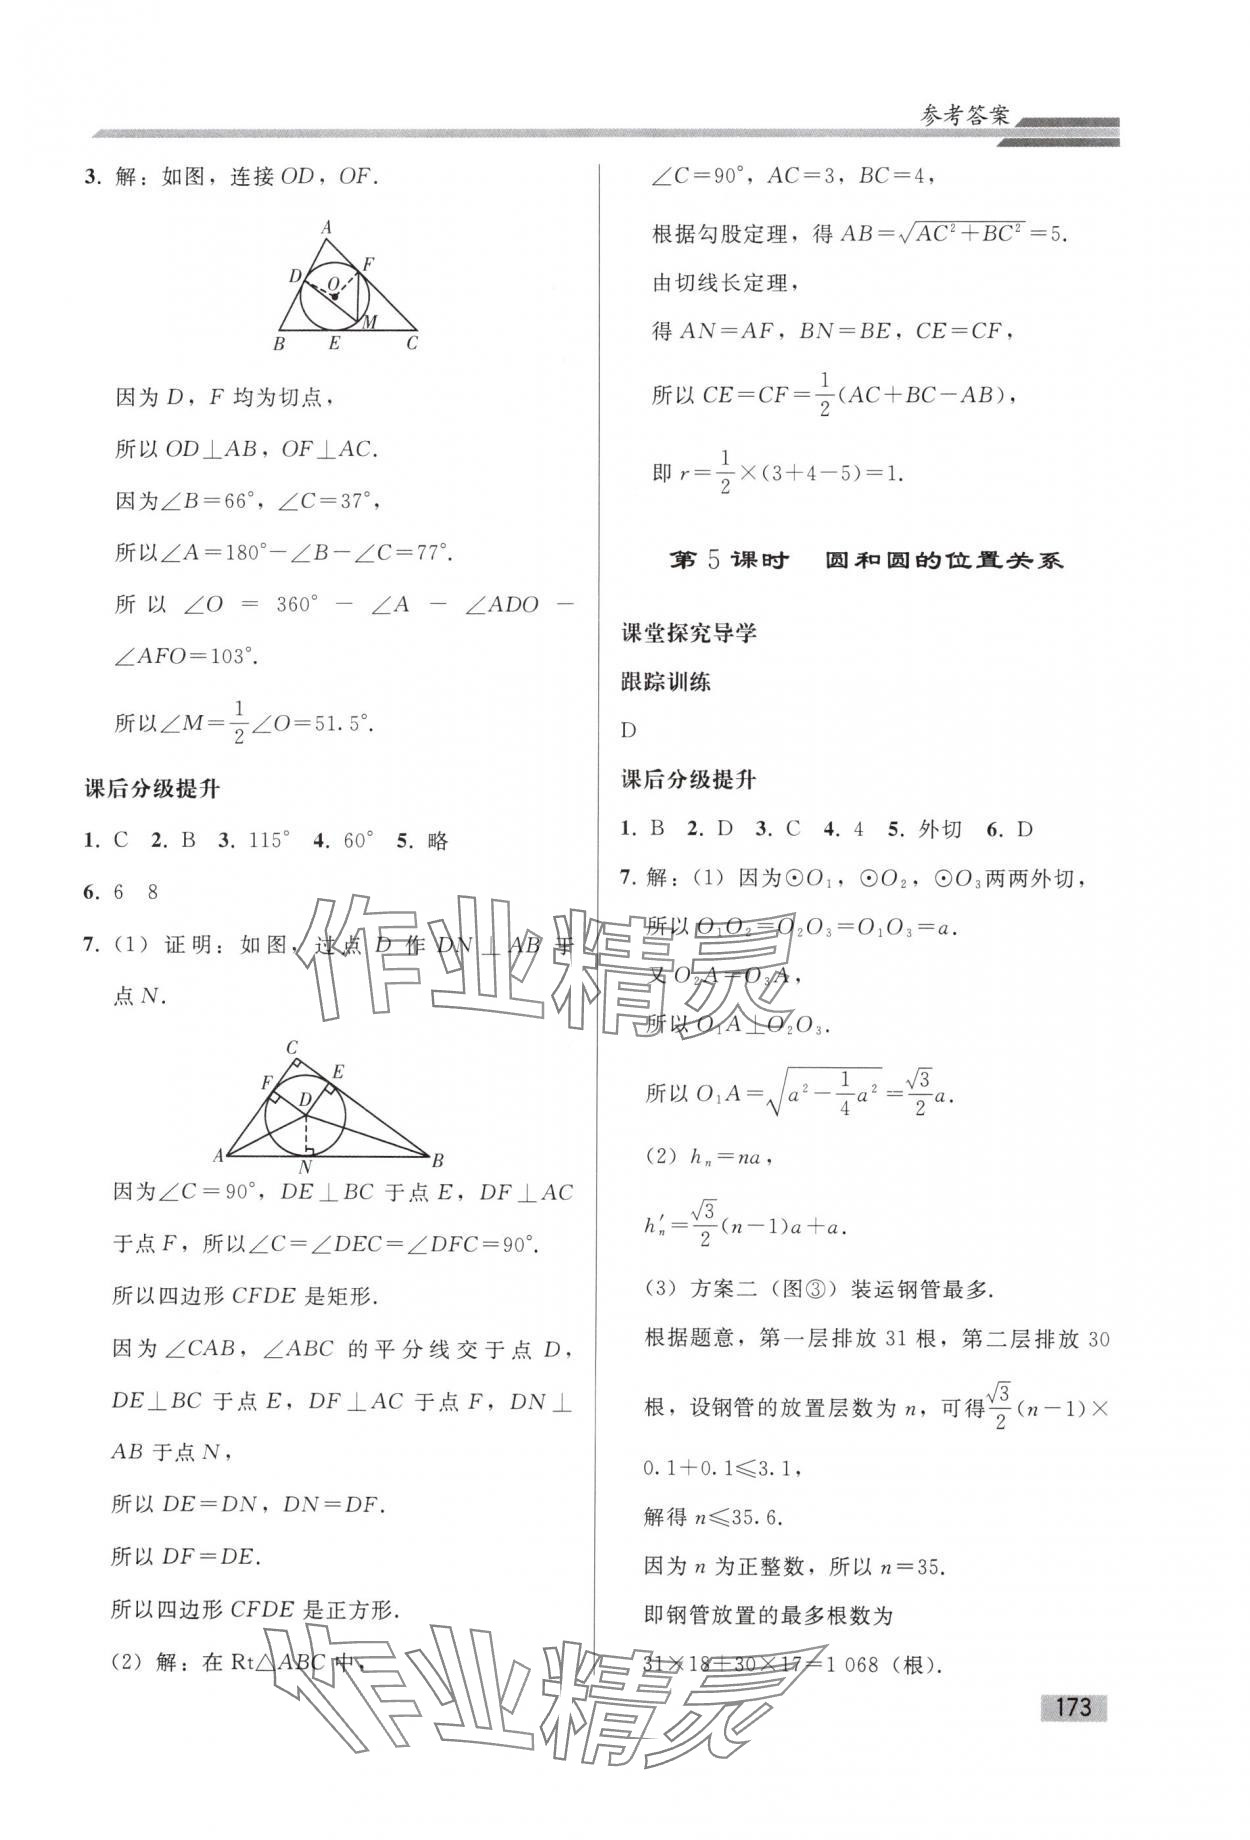 参考答案
3. 解：如图，连接 OD，OF.
A
D
F
O
M
B
E
C
因为 D，F 均为切点，
所以 OD⊥AB，OF⊥AC.
因为∠B=66°，∠C=37°，
所以∠A=180°-∠B-∠C=77°.
所以 ∠O = 360° - ∠A - ∠ADO -
∠AFO=103°.
所以∠M=\frac{1}{2}∠O=51.5°.
课后分级提升
1. C 2. B 3. 115° 4. 60° 5. 略
6. 6 8
7. (1) 证明：如图，过点 D 作 DN⊥AB 于
点 N.
C
F
E
D
A
N
B
因为∠C=90°，DE⊥BC 于点 E，DF⊥AC
于点 F，所以∠C=∠DEC=∠DFC=90°.
所以四边形 CFDE 是矩形.
因为∠CAB，∠ABC 的平分线交于点 D，
DE⊥BC 于点 E，DF⊥AC 于点 F，DN⊥
AB 于点 N，
所以 DE=DN，DN=DF.
所以 DF=DE.
所以四边形 CFDE 是正方形.
(2) 解：在 Rt△ABC 中，
∠C=90°，AC=3，BC=4，
根据勾股定理，得 AB=\sqrt{AC²+BC²}=5.
由切线长定理，
得 AN=AF，BN=BE，CE=CF，
所以 CE=CF=\frac{1}{2}(AC+BC-AB)，
即 r=\frac{1}{2}×(3+4-5)=1.
第 5 课时 圆和圆的位置关系
课堂探究导学
跟踪训练
D
课后分级提升
1. B 2. D 3. C 4. 4 5. 外切 6. D
7. 解：(1) 因为⊙O₁，⊙O₂，⊙O₃两两外切，
所以 O₁O₂=O₂O₃=O₁O₃=a.
又 O₂A=O₃A，
所以 O₁A⊥O₂O₃.
所以 O₁A=\sqrt{a²-\frac{1}{4}a²}=\frac{\sqrt{3}}{2}a.
(2) hₙ=na，
h′ₙ=\frac{\sqrt{3}}{2}(n-1)a+a.
(3) 方案二（图③）装运钢管最多.
根据题意，第一层排放 31 根，第二层排放 30
根，设钢管的放置层数为 n，可得\frac{\sqrt{3}}{2}(n-1)×
0.1+0.1≤3.1，
解得 n≤35.6.
因为 n 为正整数，所以 n=35.
即钢管放置的最多根数为
31×18+30×17=1 068（根）.
173
作业精灵
作业精灵